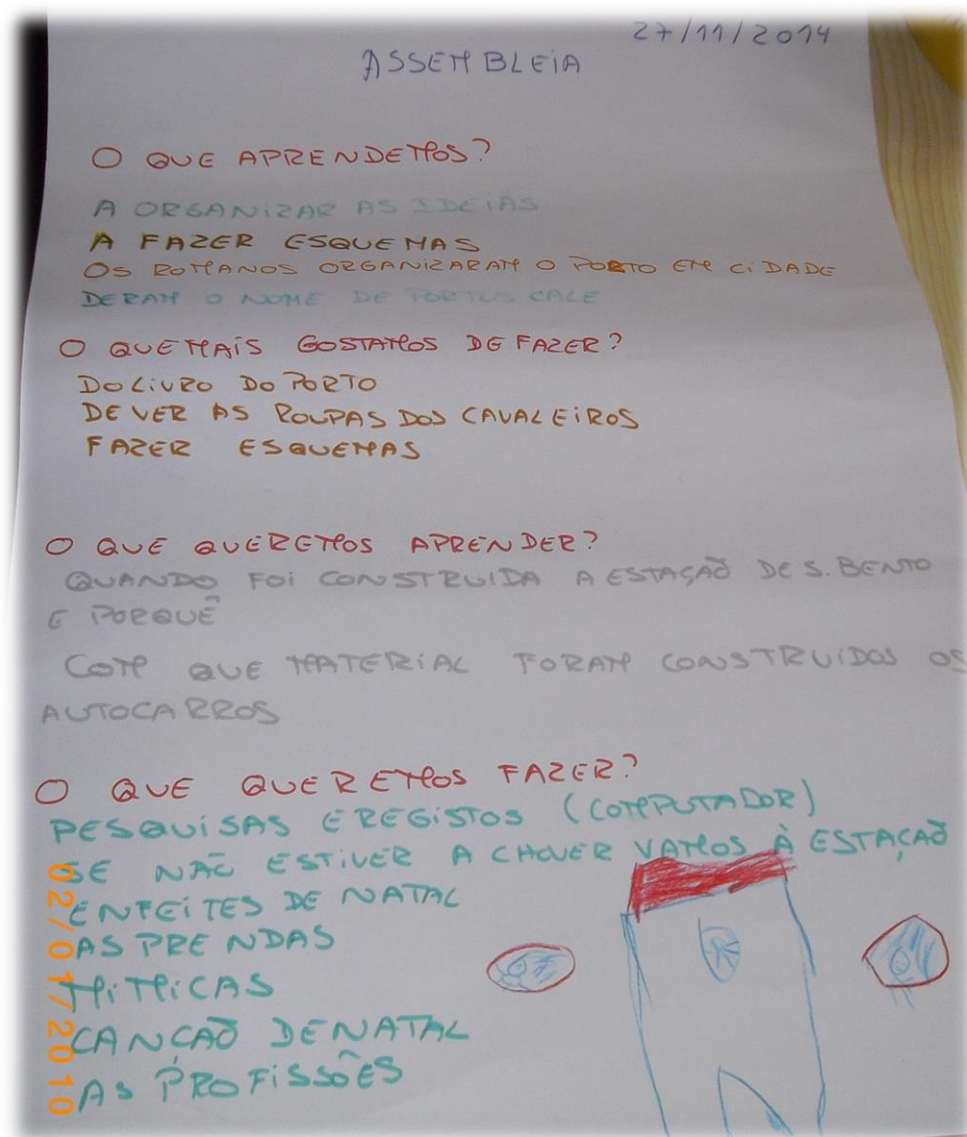 27/11/2014
ASSEMBLEIA
O QUE APRENDEMOS?
A ORGANIZAR AS IDEIAS
A FAZER ESQUEMAS
OS ROMANOS ORGANIZARAM O PORTO EM CIDADE
DERAM O NOME DE PORTUS CALE
O QUE MAIS GOSTAMOS DE FAZER?
DO LIVRO DO PORTO
DE VER AS ROUPAS DOS CAVALEIROS
FAZER ESQUEMAS
O QUE QUEREMOS APRENDER?
QUANDO FOI CONSTRUIDA A ESTAÇÃO DE S. BENTO
E PORQUÊ
COM QUE MATERIAL FORAM CONSTRUIDOS OS
AUTOCARROS
O QUE QUEREMOS FAZER?
PESQUISAS E REGISTOS (COMPUTADOR)
SE NÃO ESTIVER A CHOVER VAMOS À ESTAÇÃO
ENFEITES DE NATAL
AS PRENDAS
MIMICAS
CANÇÃO DE NATAL
AS PROFISSÕES
02/01/2010